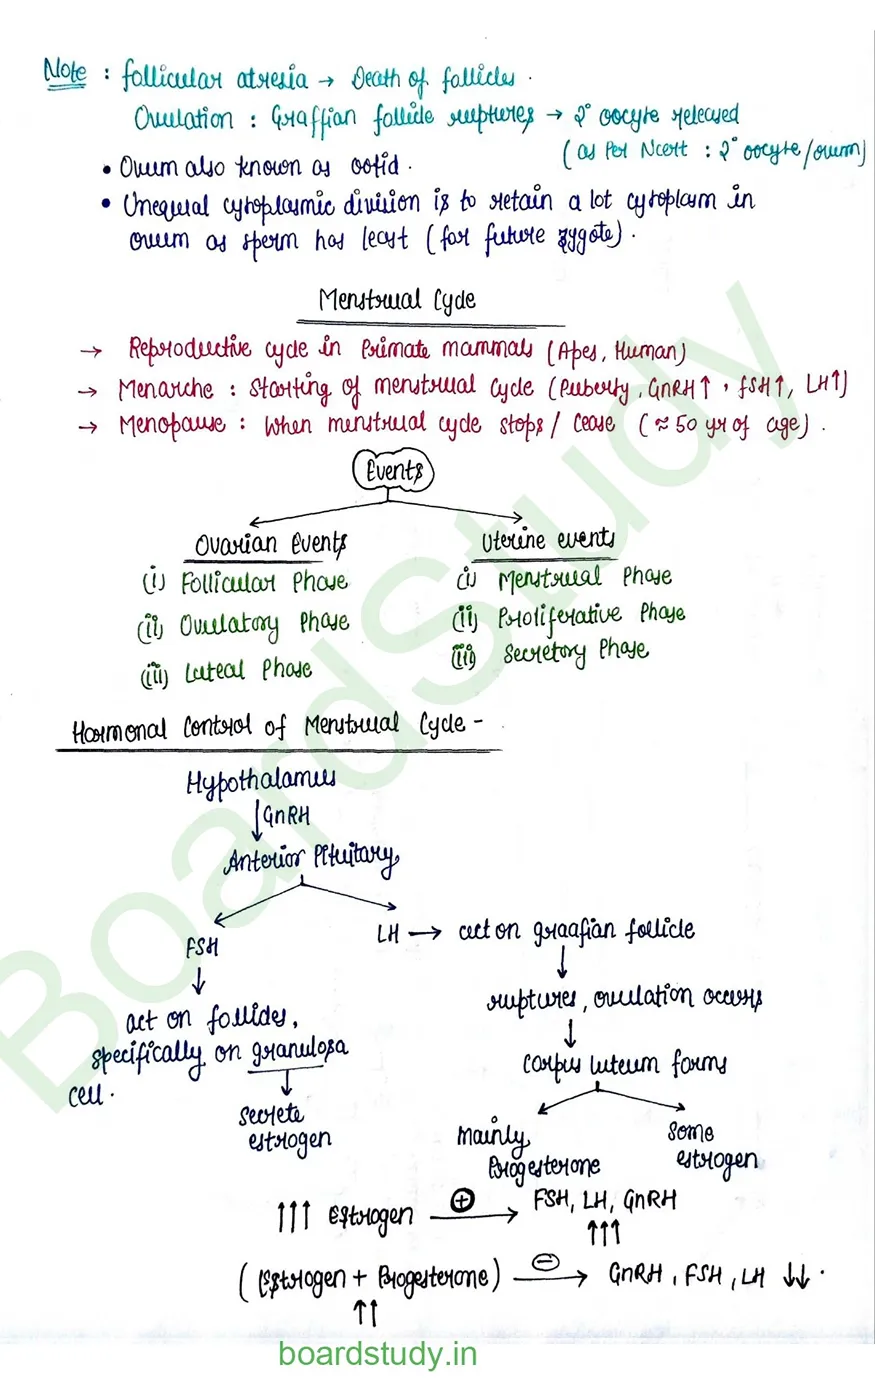 Note : follicular atresia → Death of follicles.
Ovulation : Graffian follicle ruptures → 2° oocyte released
(as Per Ncert : 2° oocyte/ovum)
• Ovum also known as ootid.
• Unequal cytoplasmic division is to retain a lot cytoplasm in
ovum as sperm has least (for future zygote).
Menstrual Cycle
→ Reproductive cycle in Primate mammals (Apes, Human)
→ Menarche : Starting of menstrual cycle (Puberty, GnRH↑, FSH↑, LH↑)
→ Menopause : When menstrual cycle stops / Cease (≈ 50 yr of age).
Events
Ovarian Events
Uterine events
(i) Follicular Phase
(i) Menstrual Phase
(ii) Ovulatory Phase
(ii) Proliferative Phase
(iii) Luteal Phase
(iii) Secretory Phase
Hormonal Control of Menstrual Cycle -
Hypothalamus
↓ GnRH
Anterior Pituitary
FSH
LH → act on graafian follicle
↓
↓
ruptures, ovulation occurs
act on follides,
↓
specifically on granulosa
Corpus luteum forms
cell.
↓
secrete
estrogen
mainly
Progesterone
Some
estrogen
↑↑↑ Estrogen ⊕→ FSH, LH, GnRH
↑↑↑
(Estrogen + Progesterone) ⊖→ GnRH, FSH, LH ↓↓.
↑↑
BoardStudy
boardstudy.in